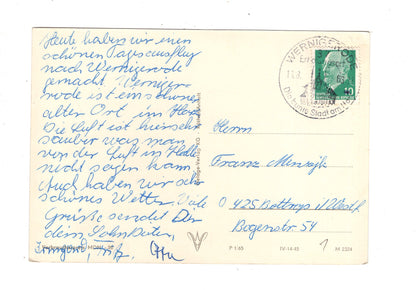 Heute haben wir einen
schönen Tagesausflug
nach Wernigerode
gemacht. Wernige-
rode ist ein schöner
alter Ort im Harz.
Die Luft ist hier sehr
sauber was man
von der Luft in Halle
nicht sagen kann
Auch haben wir sehr
schönes Wetter. Viele
Grüße sendet Dir
dein Sohn Peter,
Irmgard, Fritz,
WERNIGERODE
Die bunte Stadt am Harz
10
Herrn
Franz
O 425 Bottrop i/Westf.
Bogenstr. 54
P 1/65
IV-14-45
1